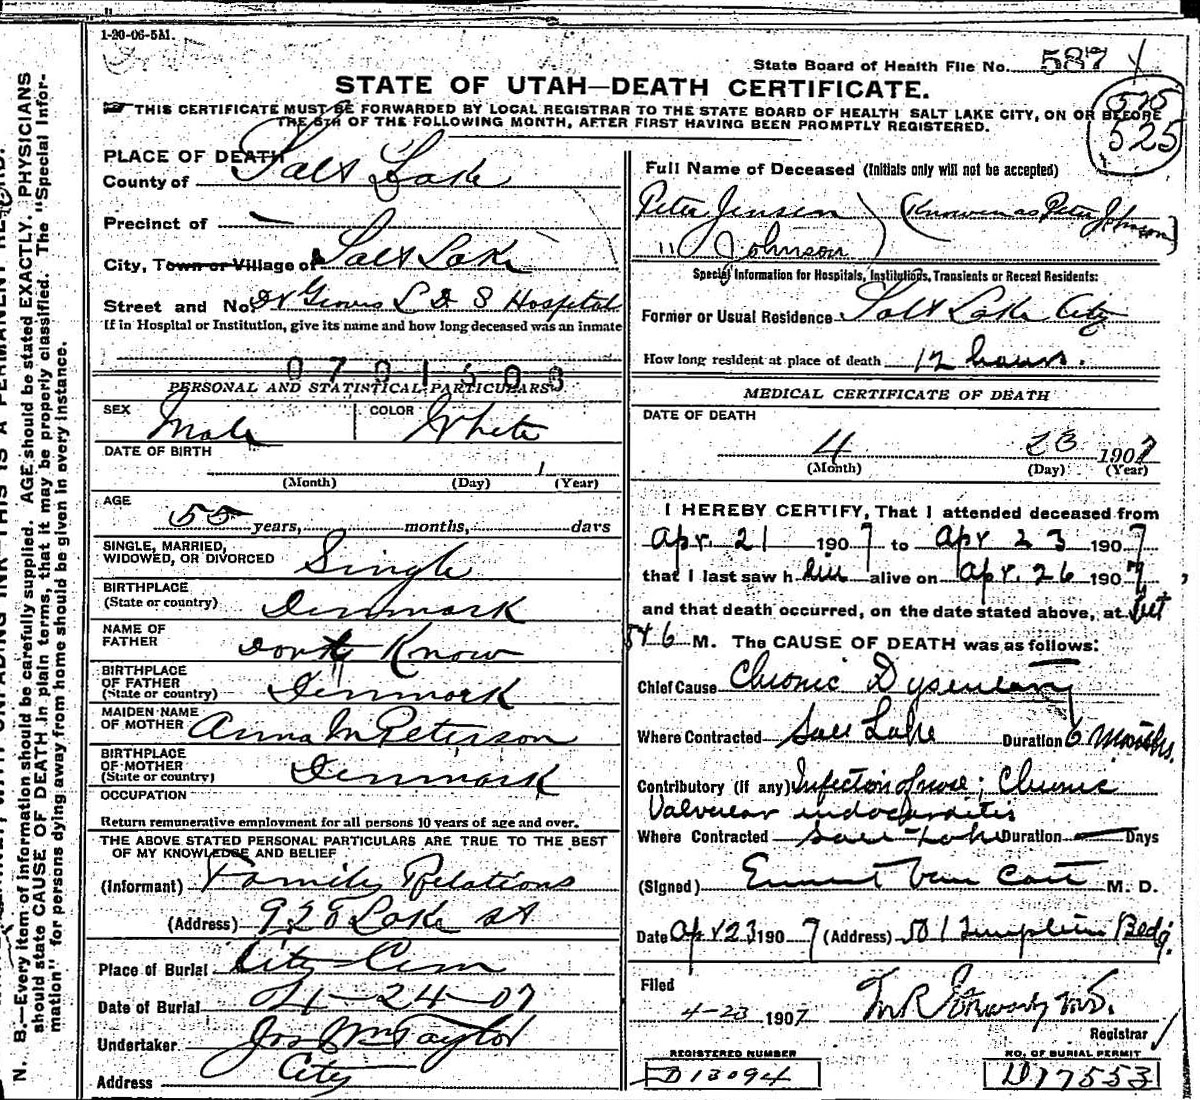 1-20-06-5M.
State Board of Health File No. 587
STATE OF UTAH—DEATH CERTIFICATE.
THIS CERTIFICATE MUST BE FORWARDED BY LOCAL REGISTRAR TO THE STATE BOARD OF HEALTH SALT LAKE CITY, ON OR BEFORE
THE 5TH OF THE FOLLOWING MONTH, AFTER FIRST HAVING BEEN PROMPTLY REGISTERED.
525
525
PLACE OF DEATH
County of Salt Lake
Precinct of —
City, Town or Village of Salt Lake
Street and No. Dr Groves L D S Hospital
If in Hospital or Institution, give its name and how long deceased was an inmate
0701503
PERSONAL AND STATISTICAL PARTICULARS
SEX Male COLOR White
DATE OF BIRTH
(Month) (Day) 1 (Year)
AGE
55 years, months, days
SINGLE, MARRIED,
WIDOWED, OR DIVORCED Single
BIRTHPLACE
(State or country) Denmark
NAME OF
FATHER Dont Know
BIRTHPLACE
OF FATHER
(State or country) Denmark
MAIDEN NAME
OF MOTHER Anna M Peterson
BIRTHPLACE
OF MOTHER
(State or country) Denmark
OCCUPATION
Return remunerative employment for all persons 10 years of age and over.
THE ABOVE STATED PERSONAL PARTICULARS ARE TRUE TO THE BEST
OF MY KNOWLEDGE AND BELIEF
(Informant) Family Relations
(Address) 928 Lake St
Place of Burial City Cem
Date of Burial 04-24-07
Undertaker Jos Wm Taylor
Address City
Full Name of Deceased (Initials only will not be accepted)
Peter Jensen (Known as Peter Johnson)
" Johnson
Special Information for Hospitals, Institutions, Transients or Recent Residents:
Former or Usual Residence Salt Lake City
How long resident at place of death 12 hours.
MEDICAL CERTIFICATE OF DEATH
DATE OF DEATH
4 23 1907
(Month) (Day) (Year)
I HEREBY CERTIFY, That I attended deceased from
Apr. 21 1907 to Apr 23 1907
that I last saw him alive on Apr. 26 1907,
and that death occurred, on the date stated above, at bet
5 & 6 M. The CAUSE OF DEATH was as follows:
Chief Cause Chronic Dysentery
Where Contracted Salt Lake Duration 6 months.
Contributory (if any) Infection of nose; Chronic
Valvular endocarditis
Where Contracted Salt Lake Duration — Days
(Signed) M. D.
Date Apr 23 1907 (Address) 501 Templeton Bldg.
Filed
4-23 1907
Registrar
REGISTERED NUMBER
D13094
NO. OF BURIAL PERMIT
D17553
N. B.—Every item of information should be carefully supplied. AGE should be stated EXACTLY. PHYSICIANS
should state CAUSE OF DEATH in plain terms, that it may be properly classified. The "Special Infor-
mation" for persons dying away from home should be given in every instance.